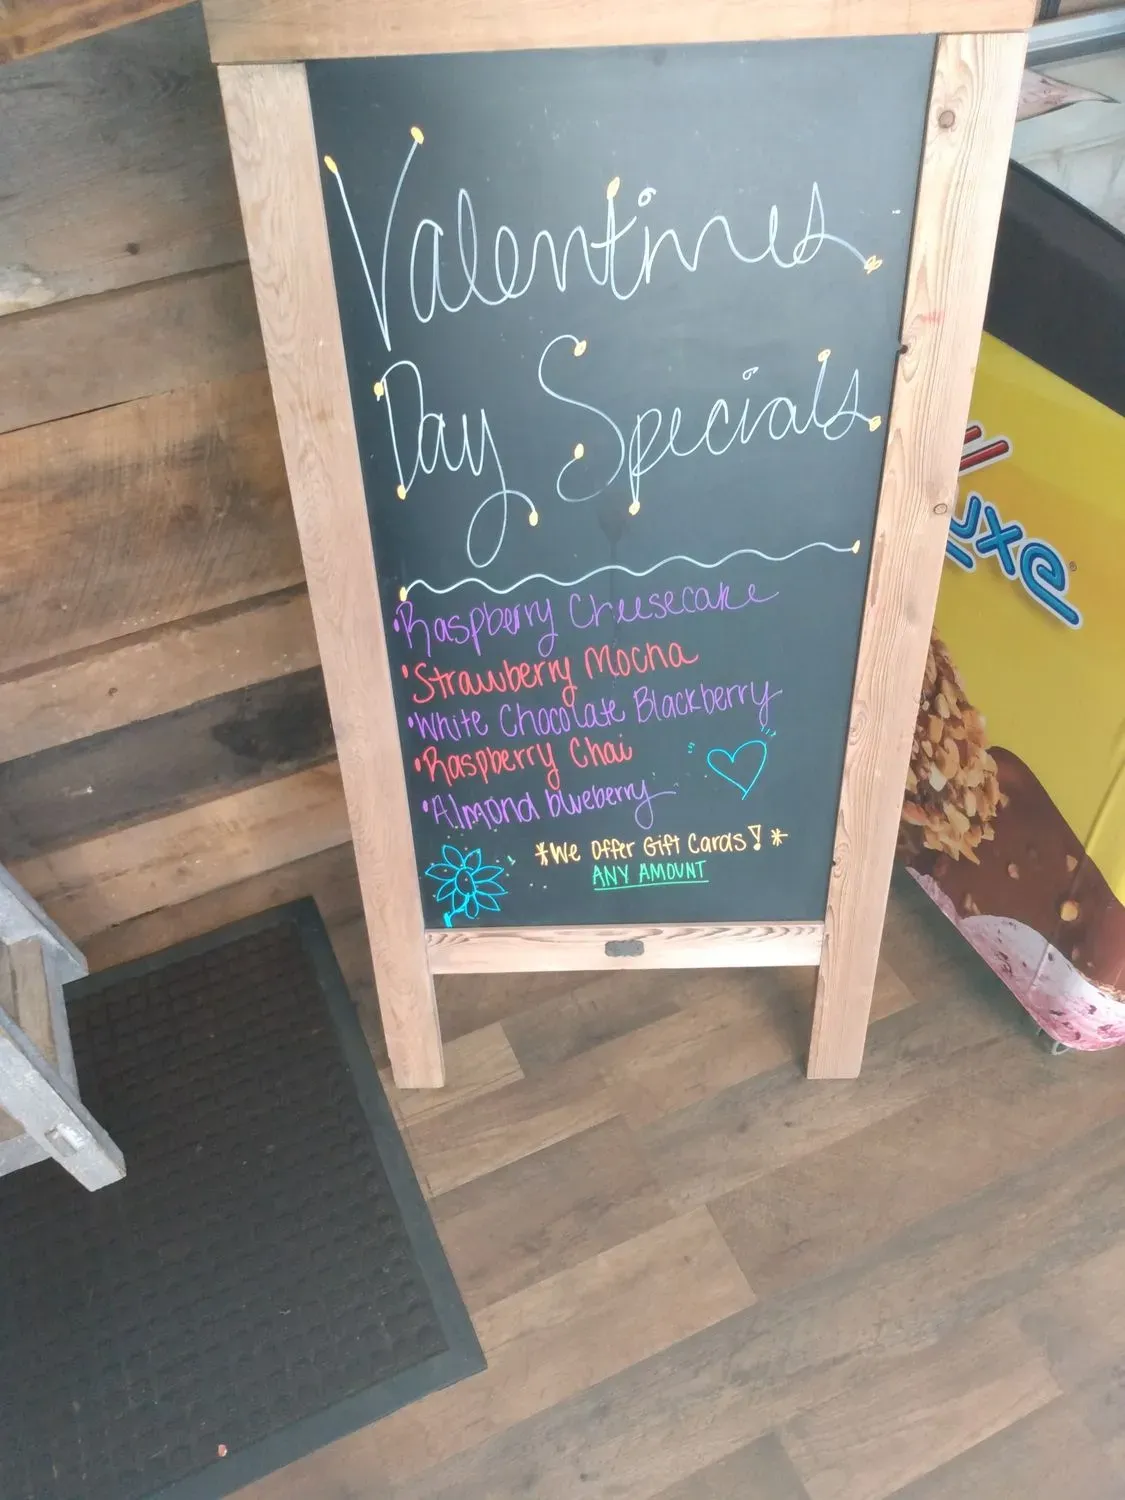 Valentines
Day Specials
•Raspberry Cheesecake
•Strawberry Mocha
•White Chocolate Blackberry
•Raspberry Chai
•Almond blueberry
*We Offer Gift Cards!*
ANY AMOUNT